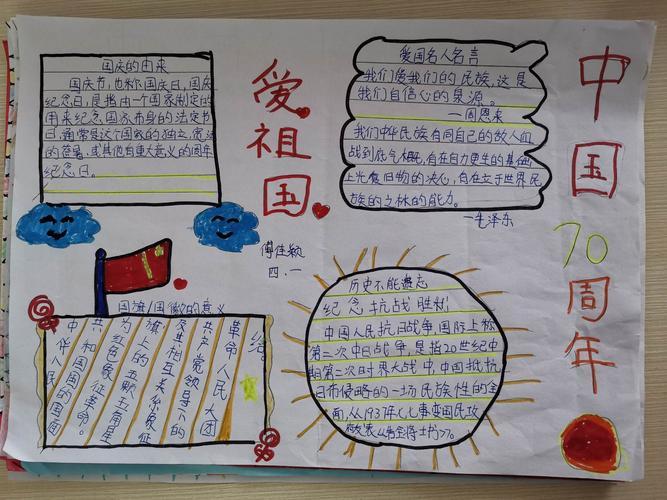 国庆的由来
国庆节,也称国庆日,国庆
纪念日,是指由一个国家制定的
用来纪念国家本身的法定节
日,通常是这个国家的独立、宪法
的签署、或其他有重大意义的周年
纪念日。
爱祖国
爱国名人名言
我们爱我们的民族,这是
我们自信心的泉源。
一周恩来
我们中华民族有同自己的敌人血
战到底气概,有在自力更生的基础
上光复旧物的决心,有在立于世界民
族的之林的能力。
一毛泽东
中国70周年
傅佳颖
四.一
国旗/国徽的意义
中华人民
共和国国的国面
为红色象征革命。
旗上的五颗五角星
及其相互关系象征
共产党领导下的
革命人民大团
结。
历史不能遗忘
纪念抗战胜利
中国人民抗日战争,国际上称
第二次中日战争,是指20世纪中
期第二次世界大战中,中国抵抗
日本侵略的一场民族性的全
面,从1937年七七事变国民政